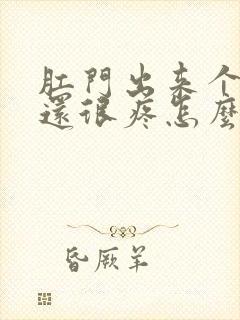 肛門出来个
還很疼怎麼
昏厥羊